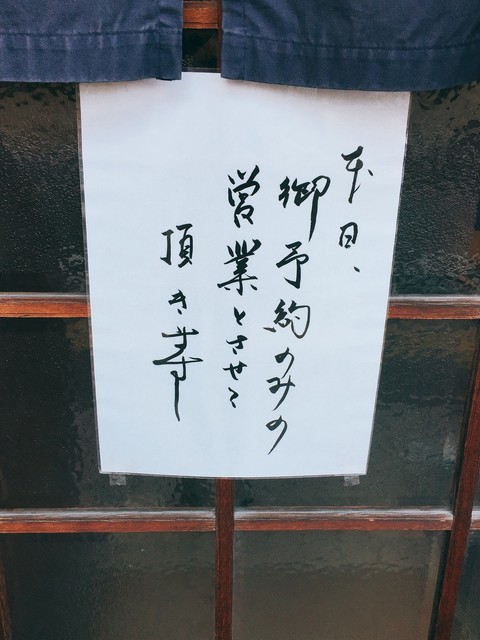 本日、
御予約のみの
営業とさせて
頂きます